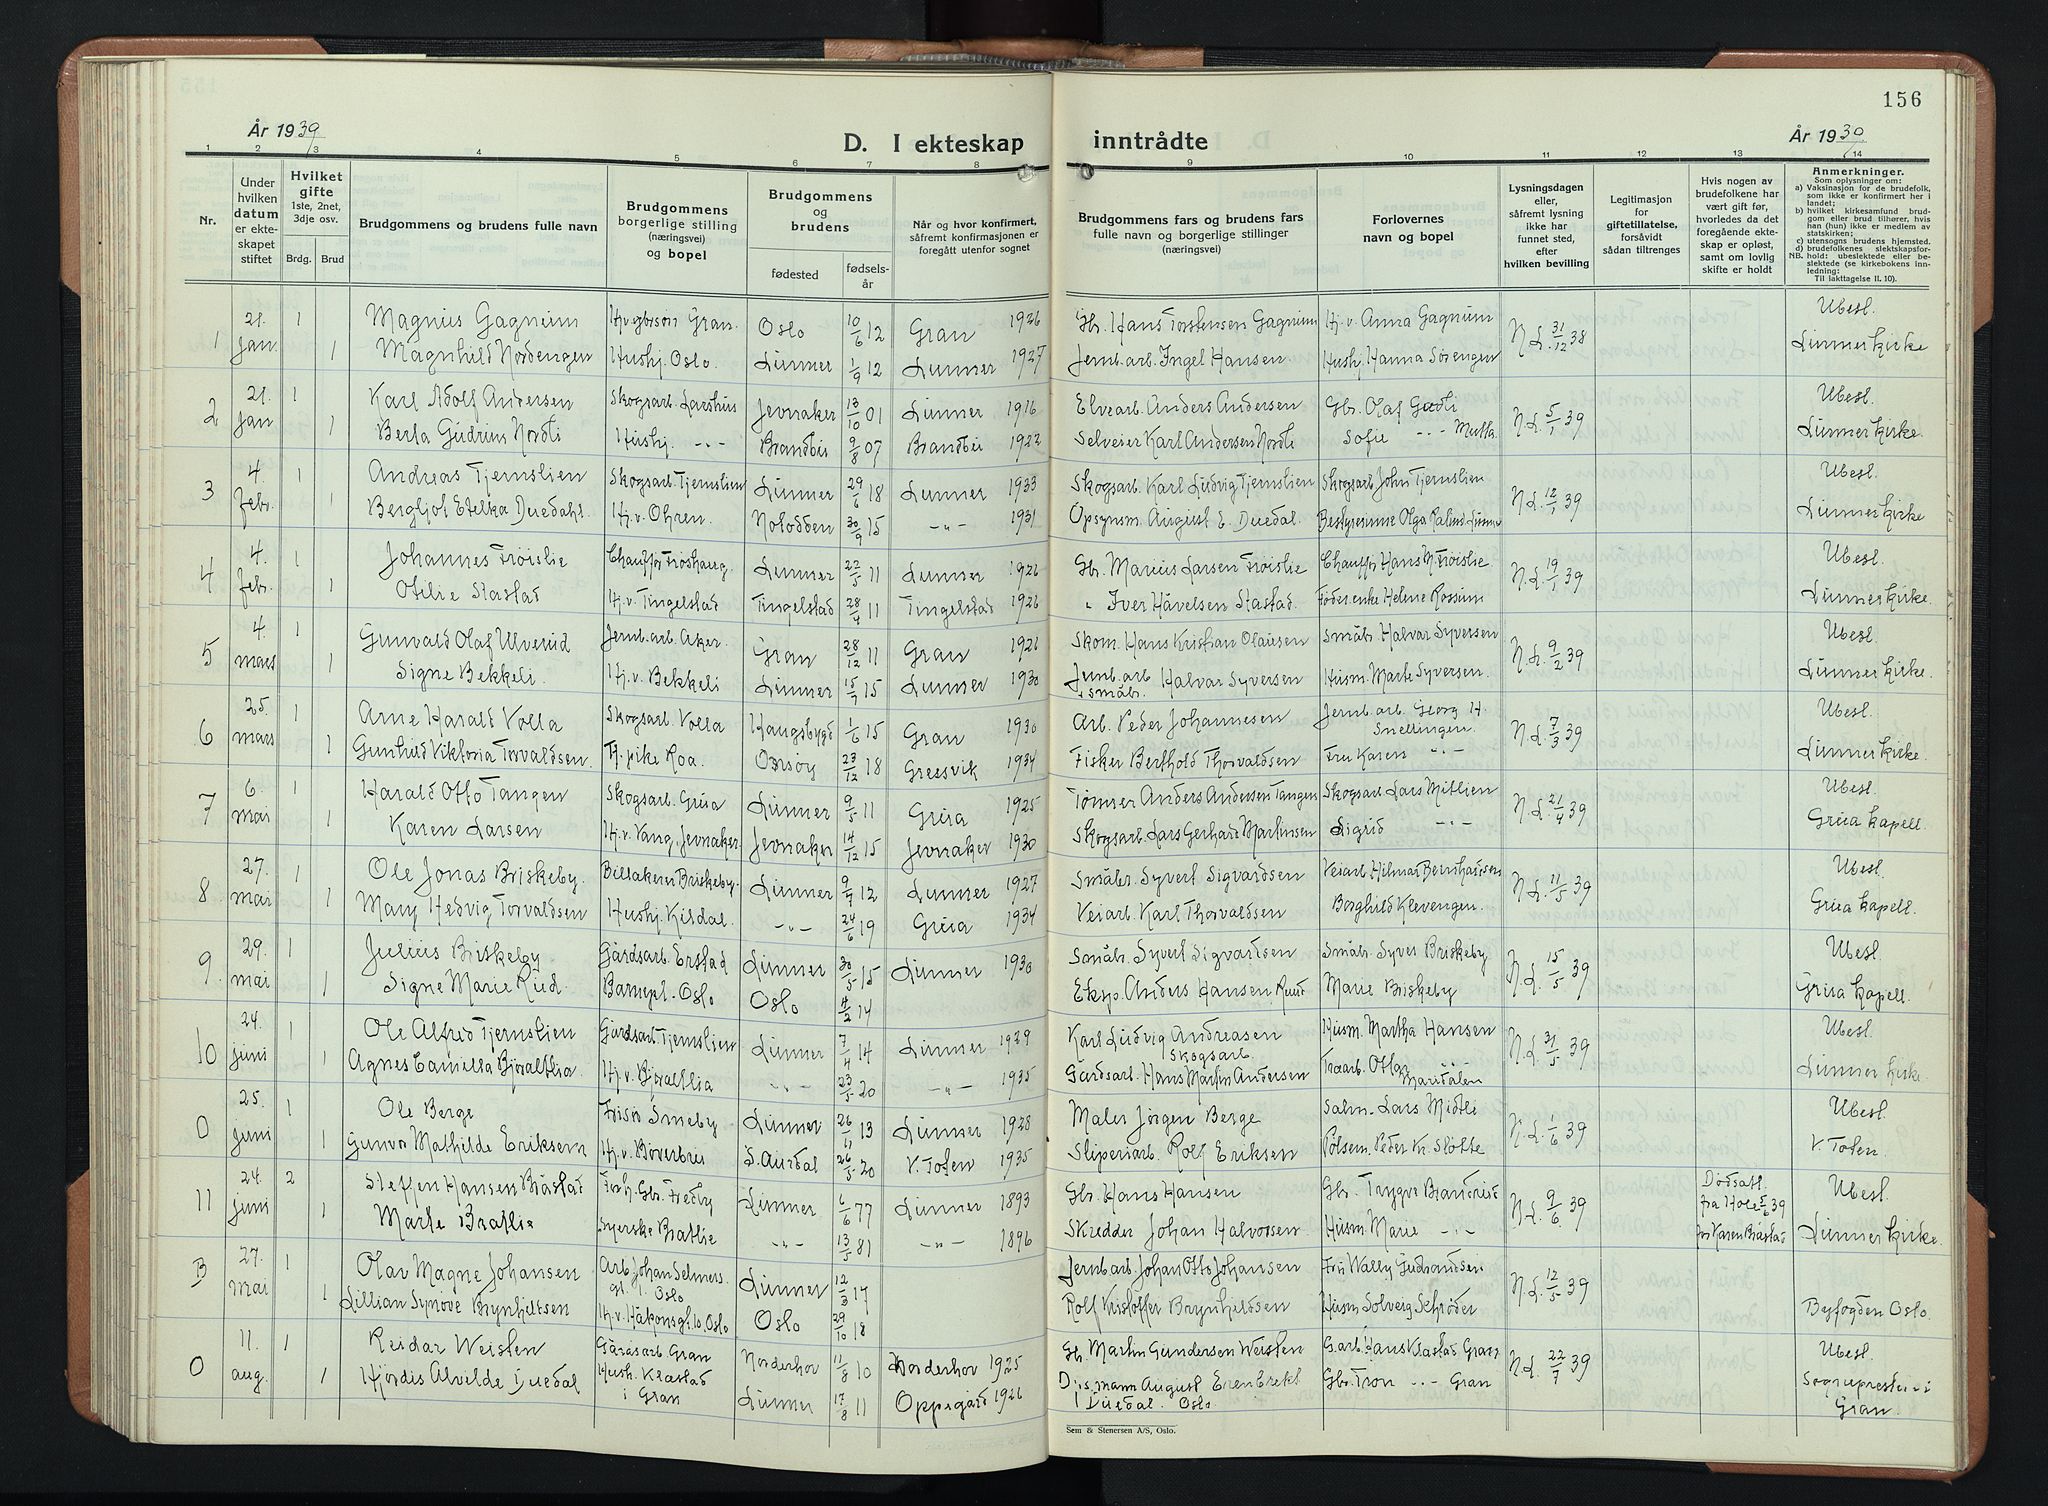 156
År 1939
D. I ekteskap inntrådte
År 1939
1 2 3 4 5 6 7 8 9 10 11 12 13 14
Nr.
Under hvilken datum er ekteskapet stiftet
Hvilket gifte 1ste, 2net, 3dje osv.
Brdg. Brud
Brudgommens og brudens fulle navn
Brudgommens borgerlige stilling (næringsvei) og bopel
Brudgommens og brudens
fødested
fødselsår
Når og hvor konfirmert, såfremt konfirmasjonen er foregått utenfor sognet
Brudgommens fars og brudens fars fulle navn og borgerlige stillinger (næringsvei)
Forlovernes navn og bopel
Lysningsdagen eller, såfremt lysning ikke har funnet sted, efter hvilken bevilling
Legitimasjon for giftetillatelse, forsåvidt sådan tiltrenges
Hvis nogen av brudefolkene har vært gift før, hvorledes da det foregående ekteskap er opløst, samt om lovlig skifte er holdt
Anmerkninger.
Som oplysninger om:
a) Vaksinasjon for de brudefolk, som ikke er konfirmert her i landet;
b) hvilket kirkesamfund brudgom eller brud tilhører, hvis han (hun) ikke er medlem av statskirken;
c) utensogns brudens hjemsted.
d) brudefolkenes slektskapsforhold: ubeslektede eller beslektede (se kirkebokens innledning:
NB.
Til Iakttagelse II. 10).
1 21. jan. 1 Magnus Gagnum Hj.v. gbrsøn Gran. Oslo 10/6 12 Gran 1926 Gbr. Hans Torstensen Gagnum Hj.v. Anna Gagnum N.L. 31/12 38 Ubesl.
1 Magnhild Nordengen Hushj. Oslo. Lunner 1/9 12 Lunner 1927 Jernb.arb. Ingel Hansen Hushj. Hanna Sørengen Lunner kirke
2 21. jan 1 Karl Adolf Andersen Skogsarb. Larshus Jevnaker 13/10 01 Lunner 1916 Elvearb. Anders Andersen Gbr. Olaf Gudli N.L. 5/1 39 Ubesl.
1 Berta Gudrun Nordli Hushj. -"- Brandbu 9/8 07 Brandbu 1922 Selveier Karl Andersen Nordli Sofie -"- Mutta. Lunner kirke.
3 4. febr. 1 Andreas Tjernslien Skogsarb. Tjernslien Lunner 29/6 18 Lunner 1933 Skogsarb. Karl Ludvig Tjernslien Skogsarb John Tjernslien N.L. 12/1 39 Ubesl.
Bergljot Etelka Duedahl. Hj.v. Ohren. Notodden 30/9 15 -"- 1931 Opsynsm. August E. Duedal. Bestyrerinne Olga Lunner kirke
4 4. febr. 1 Johannes Frøislie Chauffør Frøshaug. Lunner 22/5 11 Lunner 1926 Gbr. Marius Larsen Frøislie Chauffør Hans M. Frøislie. N.L. 19/1 39 Ubesl.
1 Otilie Stastad Hj.v. Tingelstad Tingelstad 28/4 11 Tingelstad 1926 " Iver Håvelsen Stastad. Føder.enke Helene Rossum Lunner kirke.
5 4. mars 1 Gunvald Olaf Ulverud Jernb.arb. Aker Gran 28/12 11 Gran 1926 Skom. Hans Kristian Olausen Småbr. Halvar Syversen N.L. 9/2 39 Ubesl.
1 Signe Bekkeli. Hj.v. Bekkeli Lunner 15/9 15 Lunner 1930 Jernb.arb. + småbr. Halvar Syversen Husm. Marte Syversen. Lunner kirke.
6 25. mars 1 Arne Harald Volla Skogsarb. Volla Haugsbygd 1/6 15 Gran 1930 Arb. Peder Johannesen Jernb.arb. Georg H. Snellingen. N.L. 7/3 39 Ubesl.
1 Gunhild Viktoria Torvaldsen. H.pike Roa. Onsøy 23/12 18 Gressvik 1934 Fisker Berthold Thorvaldsen Fru Karen -"- Lunner kirke.
7 6. mai 1 Harald Otto Tangen Skogsarb. Grua Lunner 9/5 11 Grua 1925 Tømmer Anders Andersen Tangen Skogsarb Lars Mitlien N.L. 21/4 39 Ubesl.
1 Karen Larsen Hj.v. Vang, Jevnaker Jevnaker 14/12 15 Jevnaker 1930 Skogsarb. Lars Gerhard Martinsen Sigrid -"- Grua kapell.
8 27. mai 1 Ole Jonas Briskeby. Billakerer Briskeby. Lunner 9/9 12 Lunner 1927 Småbr. Syvert Sigvardsen Veiarb. Hilmar Bernhardsen N.L. 11/5 39 Ubesl.
1 Mary Hedvig Torvaldsen Hushj. Kildal. -"- 24/6 19 Grua 1934 Veiarb. Karl Thorvaldsen Borghild Klevengen. Grua kapell.
9 29. mai 1 Julius Briskeby Gårdsarb. Erstad Lunner 30/5 15 Lunner 1930 Småbr. Syvert Sigvardsen Småbr. Syver Briskeby N.L. 15/5 39 Ubesl.
1 Signe Marie Rud. Barnepl. Oslo Oslo 4/2 14 Eksp. Anders Hansen Ruut Marie Briskeby Grua kapell.
10 24. juni 1 Ole Alfred Tjernslien Gårdsarb Tjernslien Lunner 7/4 14 Lunner 1929 Karl Ludvig Andreasen skogsarb. Husm. Martha Hansen N.L. 31/5 39 Ubesl.
1 Agnes Camella Bjøraltlia. Hj.v. Bjøraltlia -"- 23/5 20 -"- 1935. Gårdsarb. Hans Martin Andersen Trearb. Otto Maridalen Lunner kirke.
0 25. juni 1 Ole Berge Frisør Smeby Lunner 26/11 13 Lunner 1928 Maler Jørgen Berge Salm. Lars Midtli N.L. 1/6 39 Ubesl.
1 Gunvor Mathilde Eriksen Hj.v. Bøverbru S. Aurdal 26/5 20 V. Toten 1935 Sliperiarb. Rolf Eriksen Pølsem. Peder Kr. Slotte V. Toten.
11 24. juni 2 Steffen Hansen Bråstad Gbr. Fredby Lunner 6/6 77 Lunner 1893 Gbr. Hans Hansen Gbr. Trygve Brandrud N.L. 9/6. 39 Dødsatt. fra Hole 5/6 39 Ubesl.
1 Marte Bratlie Syerske Bratlie -"- 13/5 81 -"- 1896 Skredder Johan Halvorsen Husm. Marie -"- for Karen Bråstad Lunner kirke.
B 27. mai 1 Olav Magne Johansen Arb. Johan Selmers gt. 1. Oslo Lunner 12/3 17 Jernb.arb. Johan Otto Johansen Fru Wally Gudrandsen N.L. 12/5 39
1 Lillian Synøve Brynhiltsen Hj.v. Håkonsgt. 10, Oslo Oslo 29/10 18 Rolf Kristoffer Brynhildsen Husm. Solveig Schrøder Byfogden Oslo.
0 11. aug. 1 Reidar Weisten Gårdsarb. Gran Norderhov 11/8 10 Norderhov 1925 Gbr. Martin Gundersen Weisten G.arb. Hans Klæstad Gran N.L. 22/7 39 Ubesl.
1 Hjørdis Alvilde Duedal Hush. Klæstad i Gran Lunner 17/8 11 Oppegård 1926 August Duedal. Oslo. Gbr. Tron -"- Gran Sognepresten i Gran.
Sem & Stenersen A/S, Oslo.